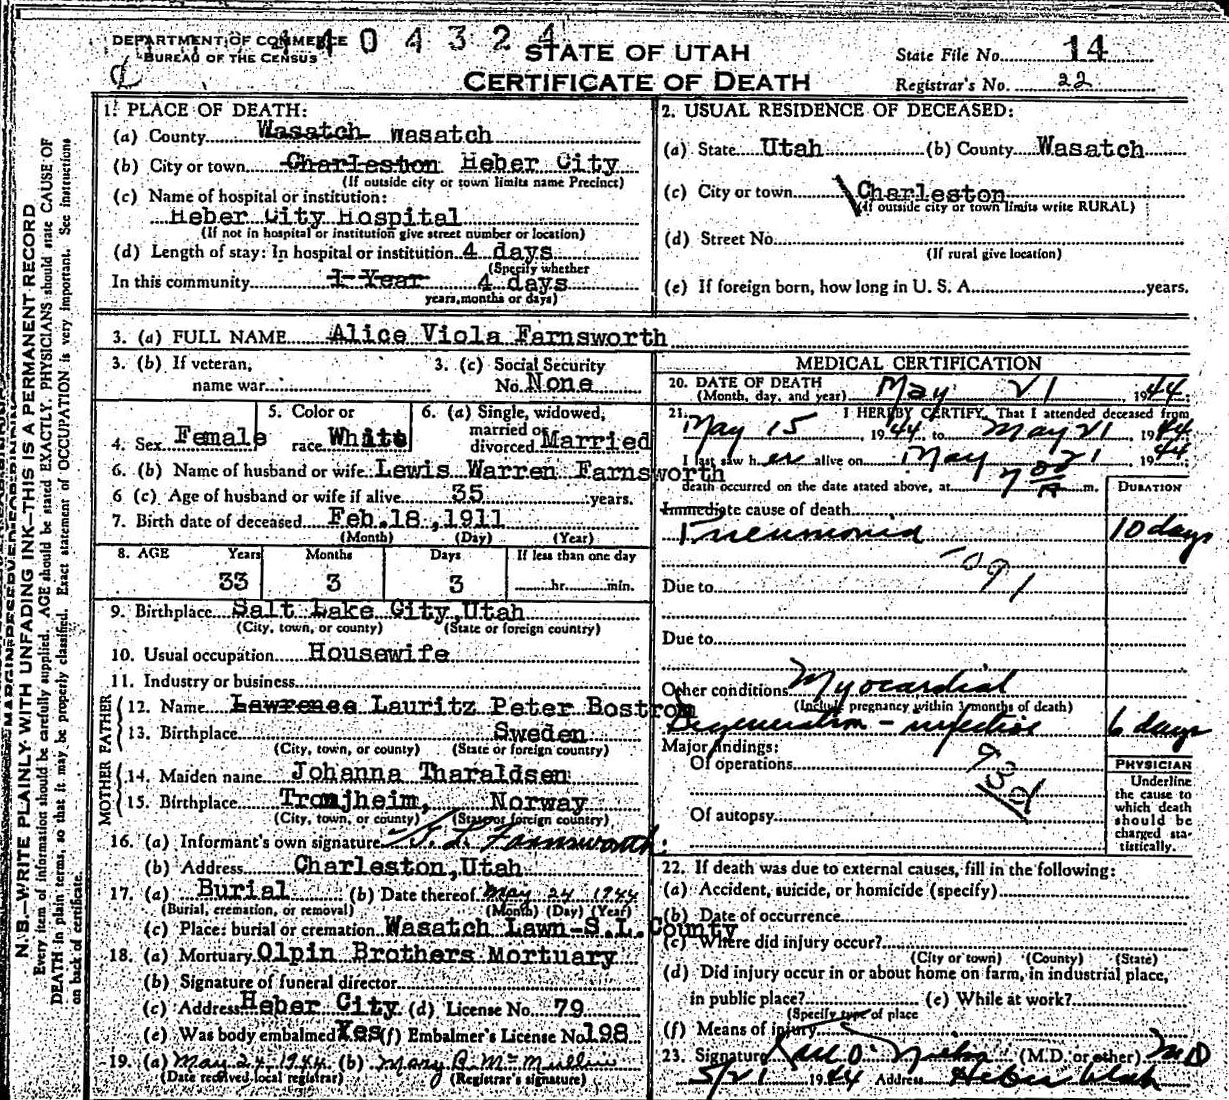 DEPARTMENT OF COMMERCE
BUREAU OF THE CENSUS
404324
STATE OF UTAH
CERTIFICATE OF DEATH
State File No. 14
Registrar's No. 22
N. B.—WRITE PLAINLY WITH UNFADING INK—THIS IS A PERMANENT RECORD
Every item of information should be carefully supplied. AGE should be stated EXACTLY. PHYSICIANS should state CAUSE OF
DEATH in plain terms, so that it may be properly classified. Exact statement of OCCUPATION is very important. See instructions
on back of certificate.
1. PLACE OF DEATH:
(a) County Wasatch Wasatch
(b) City or town Charleston Heber City
(If outside city or town limits name Precinct)
(c) Name of hospital or institution:
Heber City Hospital
(If not in hospital or institution give street number or location)
(d) Length of stay: In hospital or institution 4 days
(Specify whether
In this community 1 Year 4 days
years, months or days)
2. USUAL RESIDENCE OF DECEASED:
(a) State Utah (b) County Wasatch
(c) City or town Charleston
(If outside city or town limits write RURAL)
(d) Street No.
(If rural give location)
(e) If foreign born, how long in U. S. A. years.
3. (a) FULL NAME Alice Viola Farnsworth
3. (b) If veteran,
name war
3. (c) Social Security
No. None
4. Sex Female
5. Color or
race White
6. (a) Single, widowed,
married or
divorced Married
6. (b) Name of husband or wife Lewis Warren Farnsworth
6 (c) Age of husband or wife if alive 35 years.
7. Birth date of deceased Feb. 18, 1911
(Month) (Day) (Year)
8. AGE Years Months Days If less than one day
33 3 3 hr. min.
9. Birthplace Salt Lake City, Utah
(City, town, or county) (State or foreign country)
10. Usual occupation Housewife
11. Industry or business
FATHER
12. Name Lawrence Lauritz Peter Bostrom
13. Birthplace Sweden
(City, town, or county) (State or foreign country)
MOTHER
14. Maiden name Johanna Tharaldsen
15. Birthplace Tromjheim, Norway
(City, town, or county) (State or foreign country)
16. (a) Informant's own signature Farnsworth
(b) Address Charleston, Utah
17. (a) Burial (b) Date thereof May 24 1944
(Burial, cremation, or removal) (Month) (Day) (Year)
(c) Place: burial or cremation Wasatch Lawn-S.L. County
18. (a) Mortuary Olpin Brothers Mortuary
(b) Signature of funeral director
(c) Address Heber City (d) License No. 79
(e) Was body embalmed Yes (f) Embalmer's License No. 198
19. (a) May 24, 1944 (b) Mary
(Date received local registrar) (Registrar's signature)
MEDICAL CERTIFICATION
20. DATE OF DEATH
(Month, day, and year) May 21 1944
21. I HEREBY CERTIFY, That I attended deceased from
May 15, 1944 to May 21, 1944
I last saw her alive on May 21, 1944
death occurred on the date stated above, at 7 00 A m.
DURATION
Immediate cause of death
Pneumonia 10 days
-091
Due to
Due to
Other conditions Myocardial
(Include pregnancy within 3 months of death)
Degeneration - infective 6 days
Major findings:
Of operations
93d
Of autopsy
PHYSICIAN
Underline
the cause to
which death
should be
charged sta-
tistically.
22. If death was due to external causes, fill in the following:
(a) Accident, suicide, or homicide (specify)
(b) Date of occurrence
(c) Where did injury occur?
(City or town) (County) (State)
(d) Did injury occur in or about home on farm, in industrial place,
in public place? (e) While at work?
(Specify type of place
(f) Means of injury
23. Signature (M.D. or other) MD
5/21 1944 Address Heber Utah